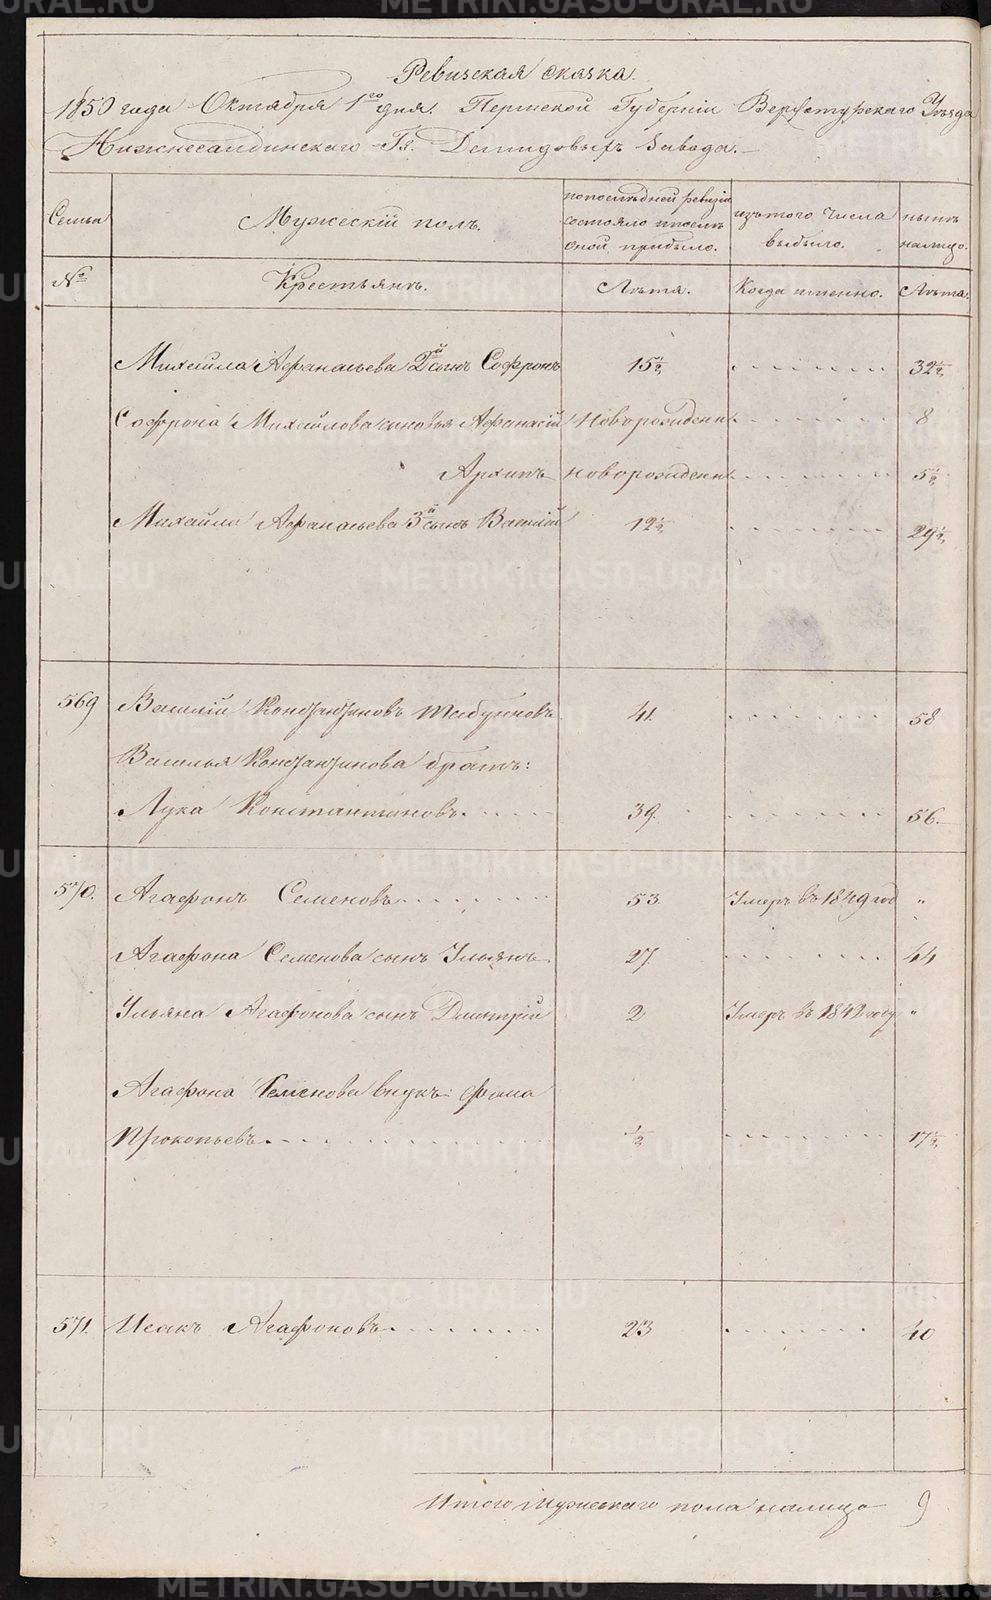 Ревизская сказка.
1850 года Октября 1го дня. Пермской Губерніи Верхотурскаго Уѣзда
Нижнесалдинскаго Гг. Демидовыхъ Завода.
Семьи
Мужескій полъ.
по последней ревизіи состояло и после оной прибыло.
изъ того числа выбыло.
ныне налицо.
№
Крестьянъ.
Лѣта.
Когда именно.
Лѣта.
Михайла Афанасьева 2й сынъ Софронъ 15½ 32½
Софрона Михайлова сыновья Афанасій Новорожденн. 8
Архипъ новорожденн. 5½
Михайла Афанасьева 3й сынъ Василій 12½ 29½
569 Василій Константиновъ Табунновъ 41. 58
Василья Константинова братъ:
Лука Константиновъ. 39. 56.
570. Агафонъ Семеновъ 53. Умеръ въ 1849 год „
Агафона Семенова сынъ Ульянъ 27 44
Ульяна Агафонова сынъ Дмитрій 2 Умеръ въ 1842 году „
Агафона Семенова внукъ: Фома
Прокопьевъ ½ 17½
571. Исакъ Агафоновъ 23 40
Итого мужескаго пола налицо 9
METRIKI.GASO-URAL.RU